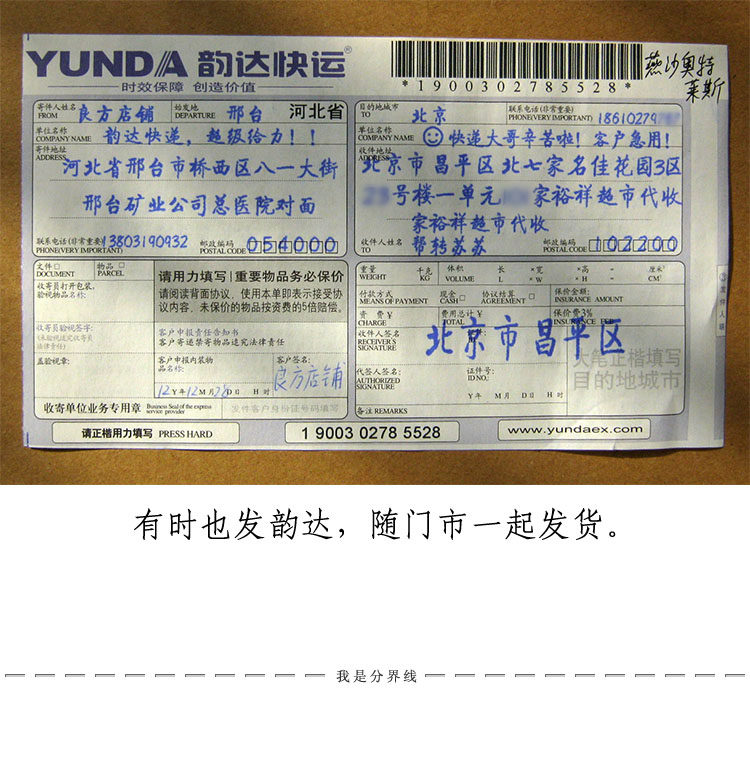 YUNDA 韵达快运®
时效保障 创造价值
*1900302785528*
燕沙奥特
莱斯
寄件人姓名 FROM 良方店铺 始发地 DEPARTURE 邢台 河北省
单位名称 COMPANY NAME 韵达快递，超级给力！！
寄件地址 ADDRESS
河北省邢台市桥西区八一大街
邢台矿业公司总医院对面
联系电话(非常重要) PHONE(VERY IMPORTANT) 13803190932 邮政编码 POSTAL CODE 054000
目的地城市 TO 北京 联系电话(非常重要) PHONE(VERY IMPORTANT) 18610279
单位名称 COMPANY NAME 快递大哥辛苦啦！客户急用！
收件地址 ADDRESS
北京市昌平区北七家名佳花园3区
号楼一单元 家裕祥超市代收
家裕祥超市代收
收件人姓名 TO 帮转苏苏 邮政编码 POSTAL CODE 102200
文件 DOCUMENT 物品 PARCEL
收寄员打开包装，
验视物品名称:
收寄员验视签字:
(未验视送究收寄员
法律责任)
盖验视章:
请用力填写|重要物品务必保价
请阅读背面协议，使用本单即表示接受协
议内容。未保价的物品按资费的5倍赔偿。
客户申报责任告知书
客户寄递禁寄物品追究法律责任
客户申报内装物
品名称:
客户签名: 良方店铺
12Y年12M月28D日 H时
收寄单位业务专用章 Business Seal of the express service provider 发件客户身份证号码填写
重量 WEIGHT 千克 KG 体积 VOLUME 长 L ×宽 ×W ×高 ×H = 厘米³ CM³
付款方式 MEANS OF PAYMENT 现金 CASH 协议结算 AGREEMENT 保价金额: INSURANCE AMOUNT
资费¥ CHARGE 费用总计¥ TOTAL 保价费3% INSURANCE FEE
收件人签名 RECEIVER'S SIGNATURE
北京市昌平区
大笔正楷填写
目的地城市
代签人签名: AUTHORIZED SIGNATURE 证件号: ID NO.:
Y年 M月 D日 H时
备注 REMARKS
③发件人联
请正楷用力填写 PRESS HARD
1 9003 0278 5528
www.yundaex.com
有时也发韵达，随门市一起发货。
我是分界线